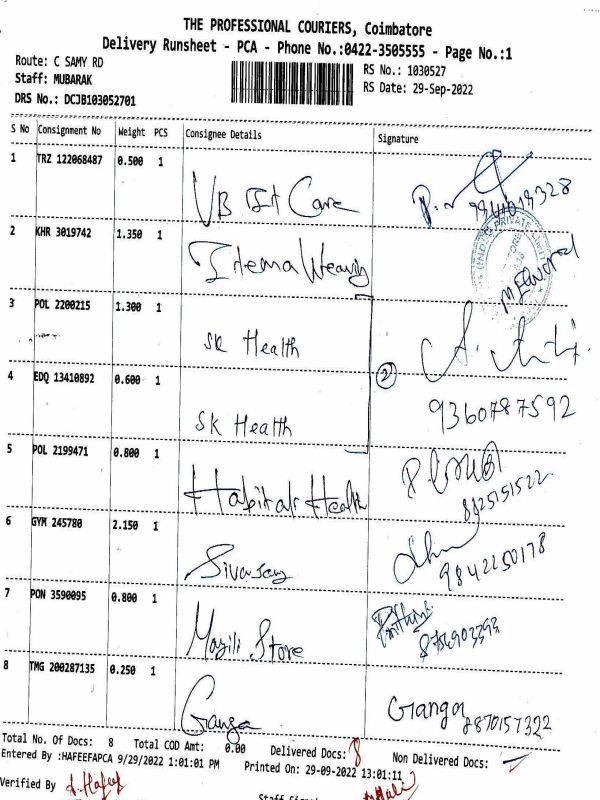 THE PROFESSIONAL COURIERS, Coimbatore
Delivery Runsheet - PCA - Phone No.:0422-3505555 - Page No.:1
Route: C SAMY RD
RS No.: 1030527
Staff: MUBARAK
RS Date: 29-Sep-2022
DRS No.: DCJB103052701
S No Consignment No Weight PCS Consignee Details Signature
1 TRZ 122068487 0.500 1
Care
2 KHR 3019742 1.350 1
3 POL 2200215 1.300 1
SK Health
4 EDQ 13410892 0.600 1
2
9360787592
SK Health
5 POL 2199471 0.800 1
Health
8825151522
6 GYM 245780 2.150 1
9842250178
7 PON 3590095 0.800 1
Store
8 TMG 200287135 0.250 1
Ganga
Ganga
8870157322
Total No. Of Docs: 8 Total COD Amt: 0.00 Delivered Docs: 8 Non Delivered Docs: -
Entered By :HAFEEFAPCA 9/29/2022 1:01:01 PM Printed On: 29-09-2022 13:01:11
Verified By